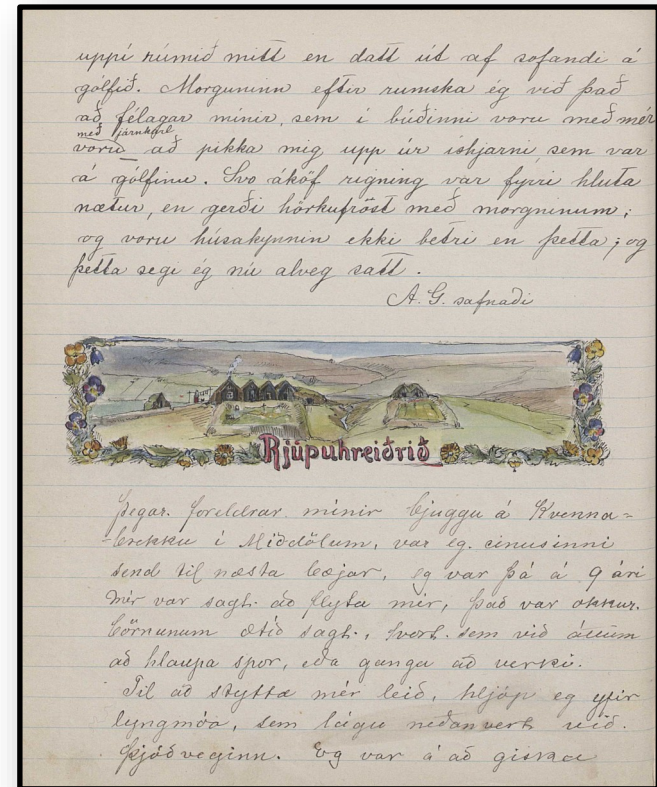 uppí rúmið mitt en datt út af sofandi á
gólfið. Morguninn eftir rumska ég við það
að félagar mínir, sem í búðinni voru með mér
með járnkarl
voru að pikka mig upp úr íshjarni sem var
á gólfinu. Svo áköf rigning var fyrri hluta
nætur, en gerði hörkufrost með morgninum;
og voru húsakynnin ekki betri en þetta; og
þetta segi ég nú alveg satt.
A. G. safnaði
Rjúpuhreiðrið
Þegar foreldrar mínir bjuggu á Kvenna-
-brekku í Miðdölum, var eg einusinni
send til næsta bæjar, eg var þá á 9 ári
mér var sagt að flýta mér, það var okkur
börnunum ætíð sagt, hvort sem við áttum
að hlaupa spor, eða ganga að verki.
Til að stytta mér leið, hljóp eg yfir
lyngmóa, sem lágu neðanvert við
þjóðveginn. Eg var á að giska